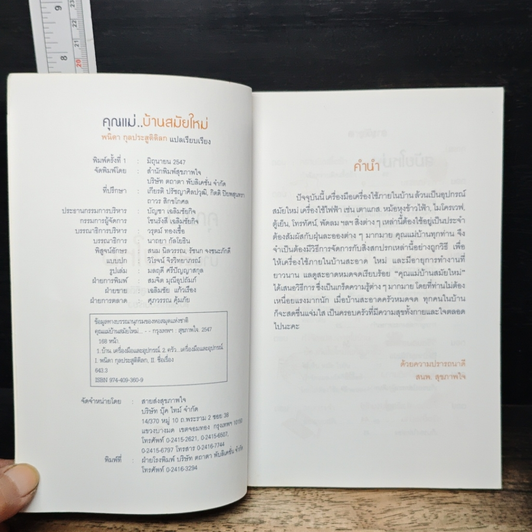 คุณแม่..บ้านสมัยใหม่
พนิดา กุลประสูติดิลก แปลเรียบเรียง
พิมพ์ครั้งที่ 1 : มิถุนายน 2547
จัดพิมพ์โดย : สำนักพิมพ์สุขภาพใจ
บริษัท ตถาตา พับลิเคชั่น จำกัด
ที่ปรึกษา : เกียรติ ปรัชญาศิลปวุฒิ, กิตติ ปิยพสุนทรา
ถาวร สิกขโกศล
ประธานกรรมการบริหาร : บัญชา เฉลิมชัยกิจ
กรรมการผู้จัดการ : โชนรังสี เฉลิมชัยกิจ
บรรณาธิการบริหาร : วรุตม์ ทองเชื้อ
บรรณาธิการ : นาถยา กัลโยธิน
พิสูจน์อักษร :
แบบปก : วิโรจน์ จิรวิทยาภรณ์
รูปเล่ม : มลฤดี ศรีปัญญาสกุล
ฝ่ายการพิมพ์ : สมจิต มุณีอุปถัมภ์
ฝ่ายขาย : เฉลิมชัย แก้วเรือง
ฝ่ายการตลาด : ศุภวรรณ คุ้มภัย
ข้อมูลทางบรรณานุกรมของหอสมุดแห่งชาติ
คุณแม่บ้านสมัยใหม่.. - - กรุงเทพฯ : สุขภาพใจ, 2547
168 หน้า.
1. บ้าน..เครื่องมือและอุปกรณ์ 2. ครัว..เครื่องมือและอุปกรณ์
I. พนิดา กุลประสูติดิลก, II. ชื่อเรื่อง
643.3
ISBN 974-409-360-9
จัดจำหน่ายโดย : สายส่งสุขภาพใจ
บริษัท บุ๊ค ไทม์ จำกัด
14/370 หมู่ 10 ถ.พระราม 2 ซอย 38
แขวงบางมด เขตจอมทอง กรุงเทพฯ 10150
โทรศัพท์ 0-2415-2621, 0-2415-6507,
0-2415-6797 โทรสาร 0-2416-7744
พิมพ์ที่ : ฝ่ายโรงพิมพ์ บริษัท ตถาตา พับลิเคชั่น จำกัด
โทรศัพท์ 0-2416-3294
คำนำ
ปัจจุบันนี้เครื่องมือเครื่องใช้ภายในบ้าน ล้วนเป็นอุปกรณ์
สมัยใหม่ เครื่องใช้ไฟฟ้า เช่น เตาแก๊ส, หม้อหุงข้าวไฟฟ้า, ไมโครเวฟ,
ตู้เย็น, โทรทัศน์, พัดลม ฯลฯ สิ่งต่าง ๆ เหล่านี้ต้องใช้อยู่เป็นประจำ
ต้องสัมผัสกับฝุ่นละอองต่าง ๆ มากมาย คุณแม่บ้านทุกท่าน จึง
จำเป็นต้องมีวิธีการจัดการกับสิ่งสกปรกเหล่านี้อย่างถูกวิธี เพื่อ
ให้เครื่องใช้ภายในบ้านสะอาด ใหม่ และมีอายุการทำงานที่
ยาวนาน แลดูสะอาดหมดจดเรียบร้อย "คุณแม่บ้านสมัยใหม่"
ได้เสนอวิธีการ ซึ่งเป็นเกร็ดความรู้ต่าง ๆ มากมาย โดยที่ท่านไม่ต้อง
เหนื่อยแรงมากนัก เมื่อบ้านสะอาดครัวหมดจด ทุกคนในบ้าน
ก็จะสดชื่นแจ่มใส เป็นครอบครัวที่มีความสุขทั้งกายและใจตลอด
ไปนะคะ
ด้วยความปรารถนาดี
สนพ. สุขภาพใจ